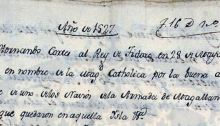 Año de 1527
Hernando Cortes al Rey de Tidore en 28 de Mayo
en nombre de la Mag. Catholica por la buena a
de un de los Navios de la Armada de Magallan
que quedaron en aquella Isla